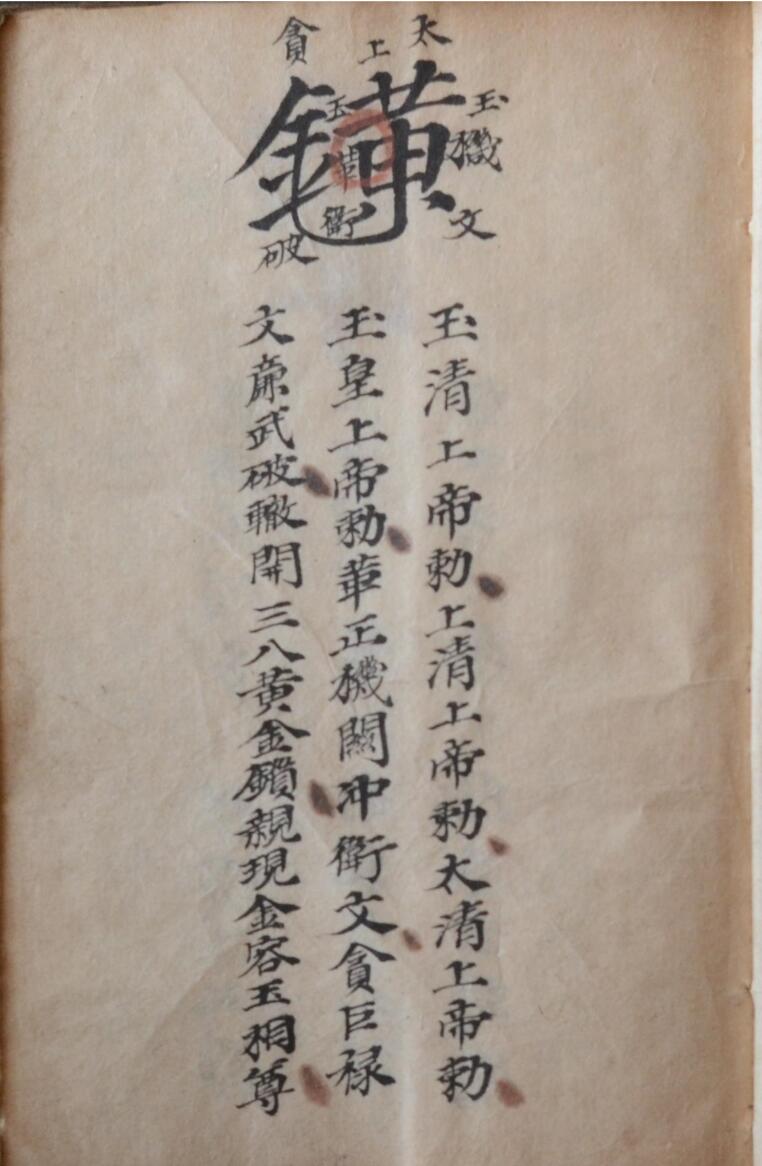 玉機文
太上
玉華衛
貪破
玉清上帝勅上清上帝勅太清上帝勅
玉皇上帝勅華正機關冲衛文貪巨禄
文廉武破轍開三八黄金鎖親現金容玉相尊